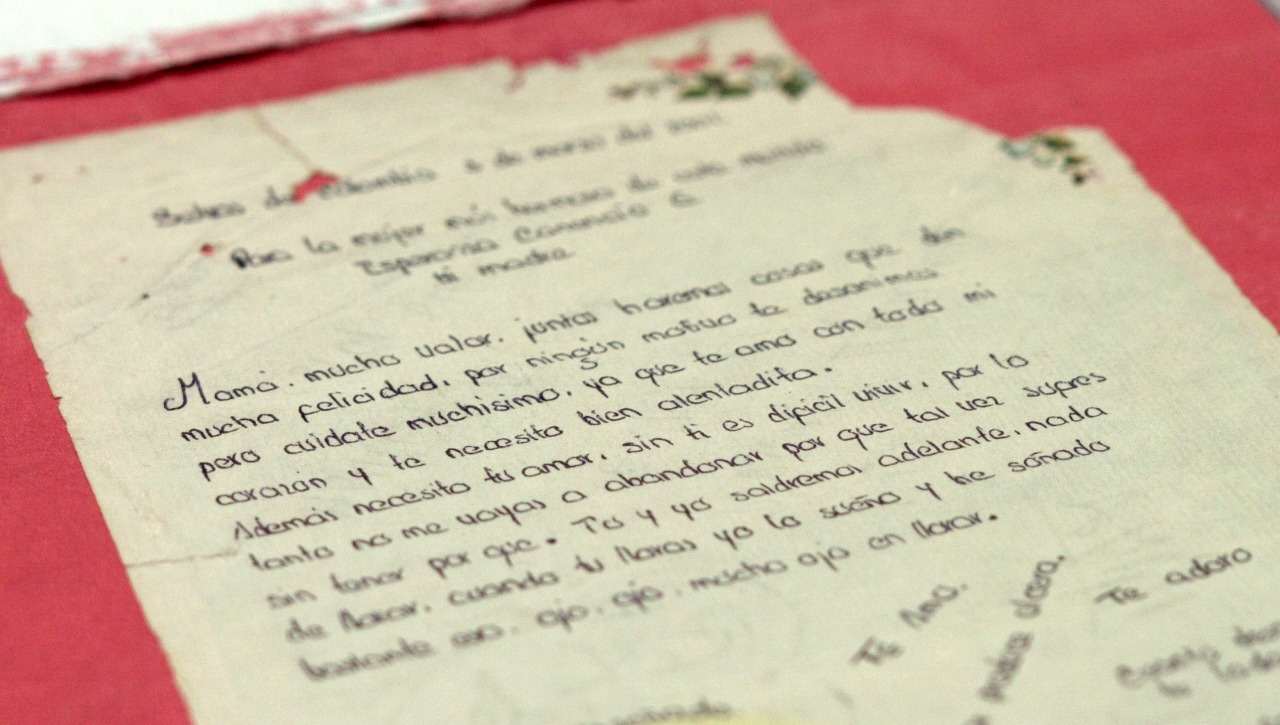 Selvas de Colombia 4 de marzo del
Para la mejor más hermosa de este mundo
Esperanza
tu madre
Mamá. mucho valor. juntas haremos cosas que den
mucha felicidad. por ningún motivo te desanimes
pero cuidate muchisimo. ya que te amo con todo mi
corazón y te necesito bien alentadita.
Además necesito tu amor. sin ti es dificil vivir. por lo
tanto no me vayas a abandonar por que tal vez supres
sin tener por que. Tu y yo saldremos adelante. nada
de llorar. cuando tu lloras yo lo sueño y he soñado
bastante eso. ojo. ojo. mucho ojo en llorar.
Te Amo.
clara.
Te adoro